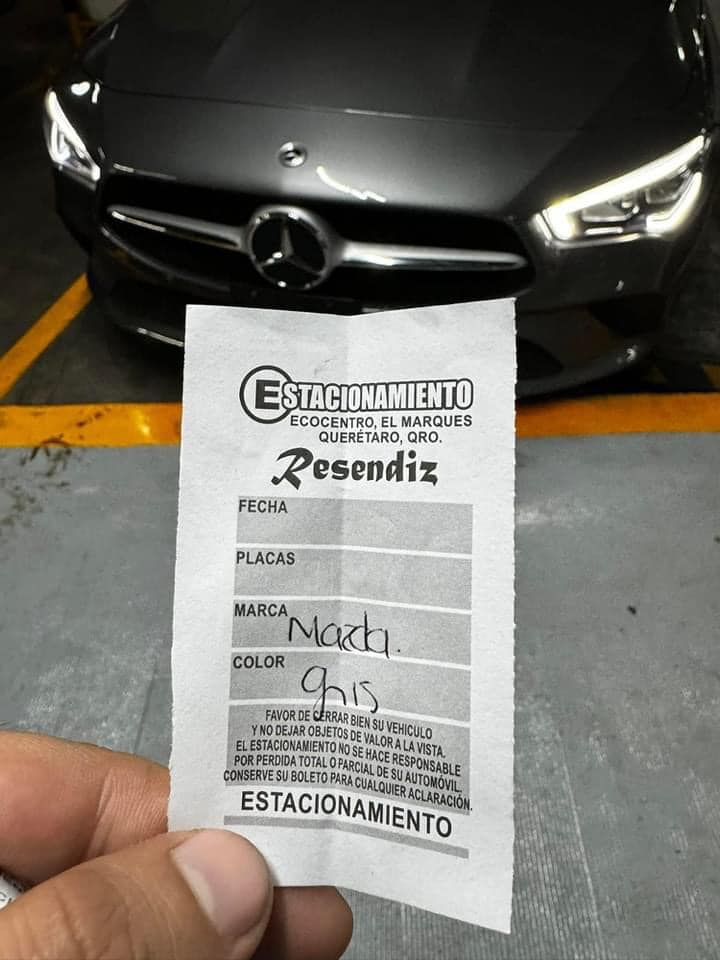 ESTACIONAMIENTO
ECOCENTRO, EL MARQUES
QUERÉTARO, QRO.
Resendiz
FECHA
PLACAS
MARCA Mazda.
COLOR gris
FAVOR DE CERRAR BIEN SU VEHICULO
Y NO DEJAR OBJETOS DE VALOR A LA VISTA.
EL ESTACIONAMIENTO NO SE HACE RESPONSABLE
POR PERDIDA TOTAL O PARCIAL DE SU AUTOMÓVIL.
CONSERVE SU BOLETO PARA CUALQUIER ACLARACIÓN.
ESTACIONAMIENTO